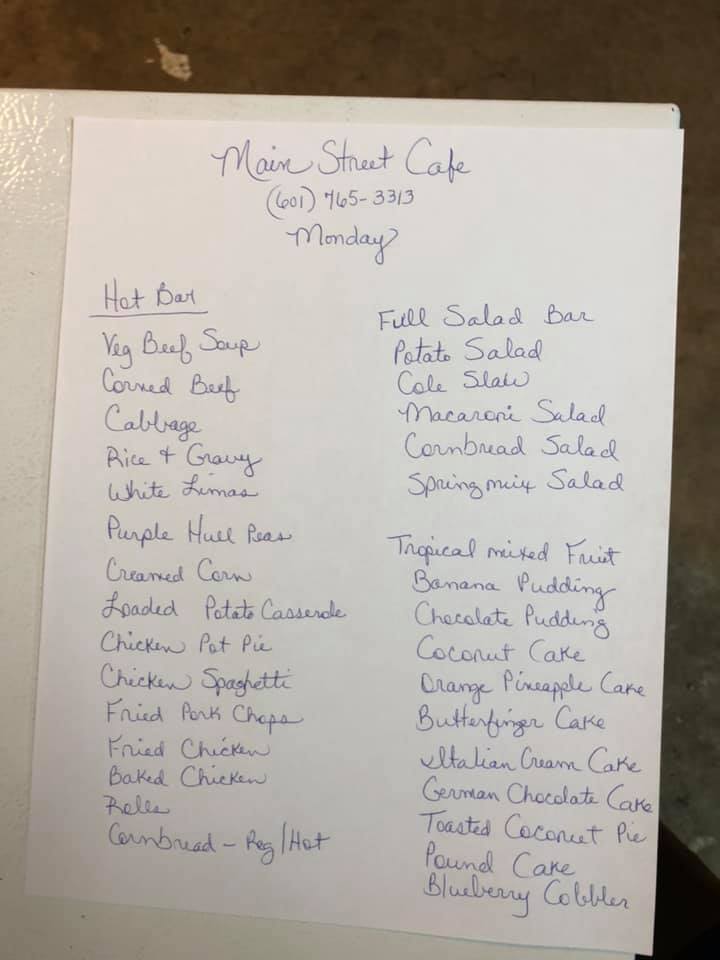 Main Street Cafe
(601) 765-3313
Monday
Hot Bar
Veg Beef Soup
Corned Beef
Cabbage
Rice + Gravy
White Limas
Purple Hull Peas
Creamed Corn
Loaded Potato Casserole
Chicken Pot Pie
Chicken Spaghetti
Fried Pork Chops
Fried Chicken
Baked Chicken
Rolls
Cornbread - Reg/Hot
Full Salad Bar
Potato Salad
Cole Slaw
Macaroni Salad
Cornbread Salad
Spring mix Salad
Tropical mixed Fruit
Banana Pudding
Chocolate Pudding
Coconut Cake
Orange Pineapple Cake
Butterfinger Cake
Italian Cream Cake
German Chocolate Cake
Toasted Coconut Pie
Pound Cake
Blueberry Cobbler